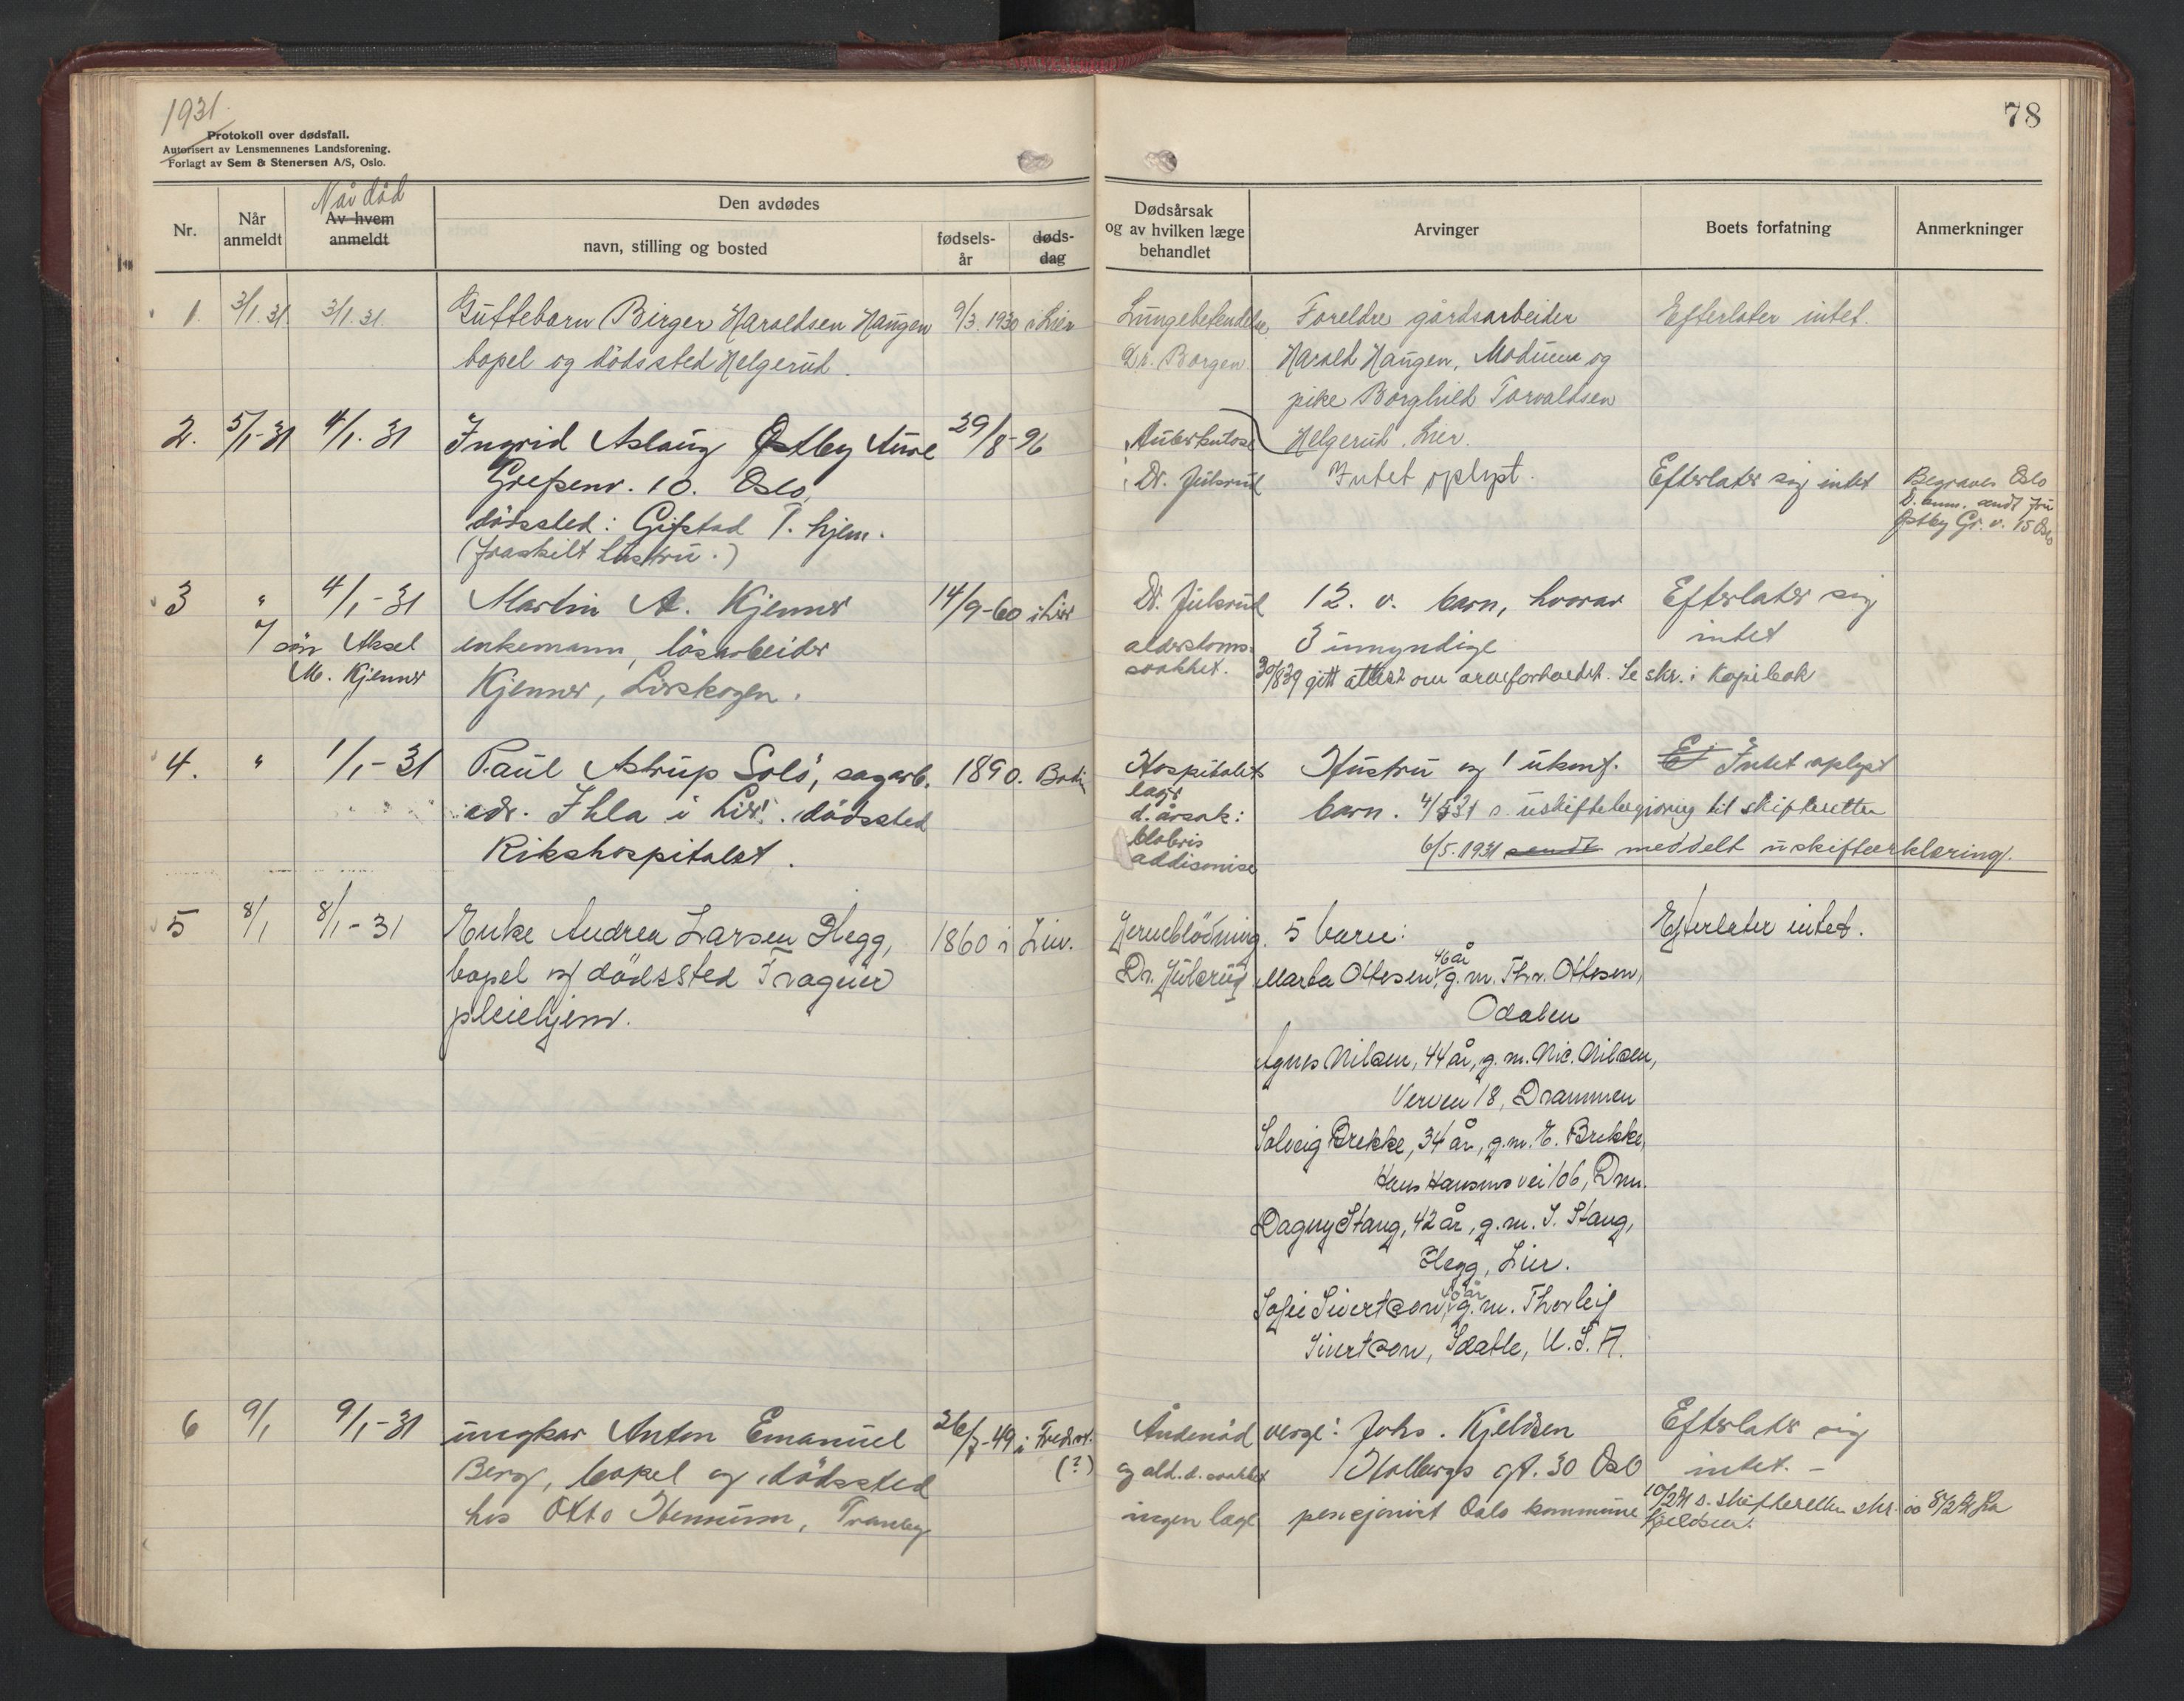 1931.
Protokoll over dødsfall.
Autorisert av Lensmennenes Landsforening.
Forlagt av Sem & Stenersen A/S, Oslo.
78
Nr.
Når anmeldt
Når död
Av hvem anmeldt
Den avdødes
navn, stilling og bosted
fødsels-år
døds-dag
Dødsårsak og av hvilken læge behandlet
Arvinger
Boets forfatning
Anmerkninger
1. 3/1.31. 3/1.31. Guttebarn Birger Haraldsen Haugen 9/3.1930 i Lier
bopel og dödssted Helgerud.
Lungebetendelse
Dr. Borgen
Foreldre gårdsarbeider
Harald Haugen, Modum og
pike Borghild Torvaldsen
Helgerud. Lier.
Efterlater intet.
2. 5/1-31 4/1.31 Ingrid Aslaug Østby 29/8-96
Grefsenv. 10. Oslo,
dödssted: Gifstad T. hjem.
(fraskilt hustru.)
Tuberkulose
Dr. Julsrud
Intet oplyst.
Efterlater sig intet
Begraves Oslo
D. anm. sendt fru
Østby Gr. v. 15 Oslo
3 " 4/1-31 Martin A. Kjenner 14/9-60 i Lier
v/ sön Aksel enkemann, lösarbeider
M. Kjenner Kjenner, Lierskogen.
Dr. Julsrud
alderdoms-
svakhet.
12. v. barn, hvorav
3 umyndige
Efterlater sig
intet
30/8 39 gitt attest om arveforholdet. Se skr. i kopibok
4. " 1/1-31 Paul Astrup Solö, sagarb. 1890. Bodin
adr. Ihla i Lier. dödssted
Rikshospitalet.
Hospitalets
læge
d.årsak:
Mobris
addisonise
Hustru og 1 ukonf.
barn. 4/5 31 s. uskiftebegjæring til skifteretten
6/5.1931 sendt meddelt uskifteerklæring.
Et Intet oplyst
5 8/1 8/1-31 Enke Andrea Larsen Hegg, 1860 i Lier.
bopel og dödssted Tranguv
pleiehjem.
Hjerneblödning.
Dr. Julsrud
5 barn:
46 år
Marta Ottesen, g.m. Thv. Ottesen,
Odalen
Agnes Nilsen, 44 år, g.m. Nic. Nilsen,
Verven 18, Drammen
Solveig Brekke, 34 år, g.m. E. Brekke,
Hans Hansens vei 106, Dmn.
Dagny Stang, 42 år, g.m. S. Stang,
Hegg, Lier.
40 år
Sofie Sivertson, g.m. Thorleif
Sivertson, Seatle, U.S.A.
Efterlater intet.
6 9/1 9/1-31 ungkar Anton Emanuel 26/7-49 i Fredr.st.
Berg, bopel og dödssted (?)
hos Otto Hennum, Tranby
Åndenöd
og ald.d.svakhet
ingen læge
verge: Johs. Kjeldsen
Holbergs gt. 30 Oslo
pensjonist Oslo kommune
Efterlater sig
intet. -
10/2 31 s. skifteretten skr. av 8/2 31 fra
Kjeldsen.